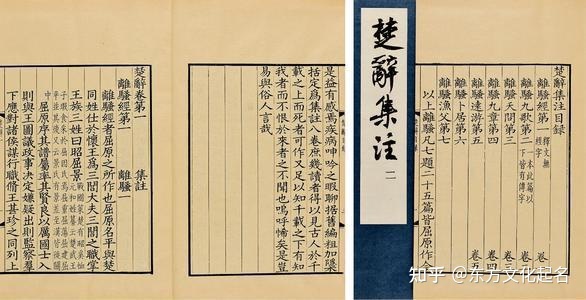 是益有感焉疾病呻吟之暇聊據舊編粗加櫽
括定爲集註八卷庶幾讀者得以見古人於千
載之上而死者可作又足以知千載之下有知
我者而不恨於來者之不聞也嗚呼悕矣是豈
易與俗人言哉
楚辭卷第一 集註
離騷經第一 離騷一
離騷經者屈原之所作也屈原名平與楚
同姓仕於懷王爲三閭大夫三閭之職掌
王族三姓曰昭屈景
屈原序其譜屬率其賢良以厲國士入
則與王圖議政事決定嫌疑出則監察羣
下應對諸侯謀行職脩王甚珍之同列上
楚辭集注目錄
離騷經第一 釋文無經字 卷
離騷九歌第二 一本此篇以下皆有傳字 卷
離騷天問第三 卷三
離騷九章第四 卷四
離騷遠游第五 卷五
離騷卜居第六
離騷漁父第七
以上離騷凡七題二十五篇皆屈原作
楚辭集注 二
知乎 @东方文化起名